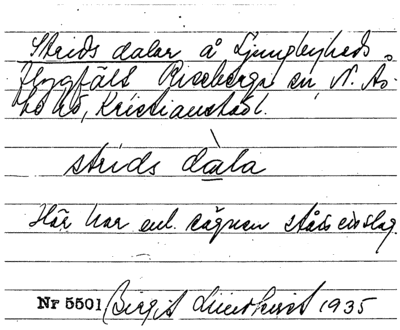 Strids dalar å Ljungbyheds
flygfält Riseberga sn, N. Ås-
bo hd, Kristianstads l.
strids dala
Här har enl. sägnen stått ett slag.
Nr 5501 Birgit Lindkvist 1935